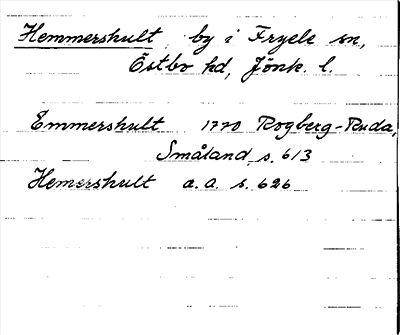 Hemmershult by i Fryele sn,
Östbo hd, Jönk. l.
Emmershult 1770 Rogberg-Ruda,
Småland, s. 613
Hemershult a.a. s. 626